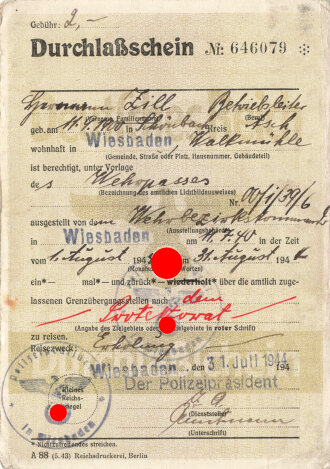 Gebühr: 2,-
Durchlaßschein Nr. 646079
Hermann Zill Betriebsleiter
(Vorname, Familienname) (Beruf)
geb. am in Schönbach Kreis Asch
wohnhaft in Wiesbaden Walkmühle
(Gemeinde, Straße oder Platz, Hausnummer, Gebäudeteil)
ist berechtigt, unter Vorlage
des Wehrpasses
(Bezeichnung des amtlichen Lichtbildausweises) Nr. 00/1/39/6
ausgestellt von dem Wehrbezirkskommando
(Ausstellungsbehörde)
Wiesbaden am 11.7.40 in der Zeit
vom 1. August 194 31. August 194
ein* – mal* – und zurück* – wiederholt* über die amtlich zuge-
lassenen Grenzübergangsstellen nach dem
Protektorat
(Angabe des Zielgebiets oder Zielgebiete in roter Schrift)
zu reisen.
Reisezweck: Erholung
Wiesbaden, den 31. Juli 1944 194
Der Polizeipräsident
Kleines
Reichs-
siegel
in Wiesbaden
(Dienststelle)
(Unterschrift)
* Nichtzutreffendes streichen.
A 88 (5. 43) Reichsdruckerei, Berlin